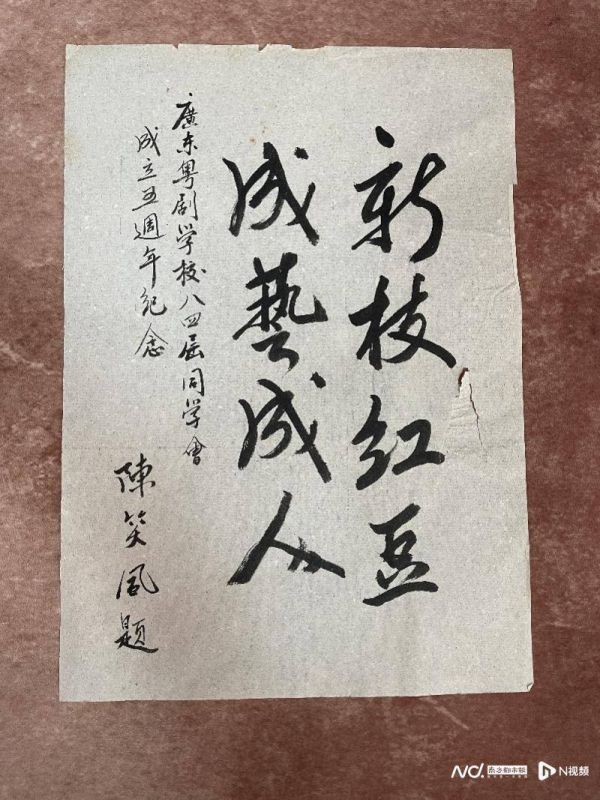 新枝红豆
成藝成人
廣东粤剧学校八四届同学會
成立五週年纪念
陳笑风题
南方都市报
N视频